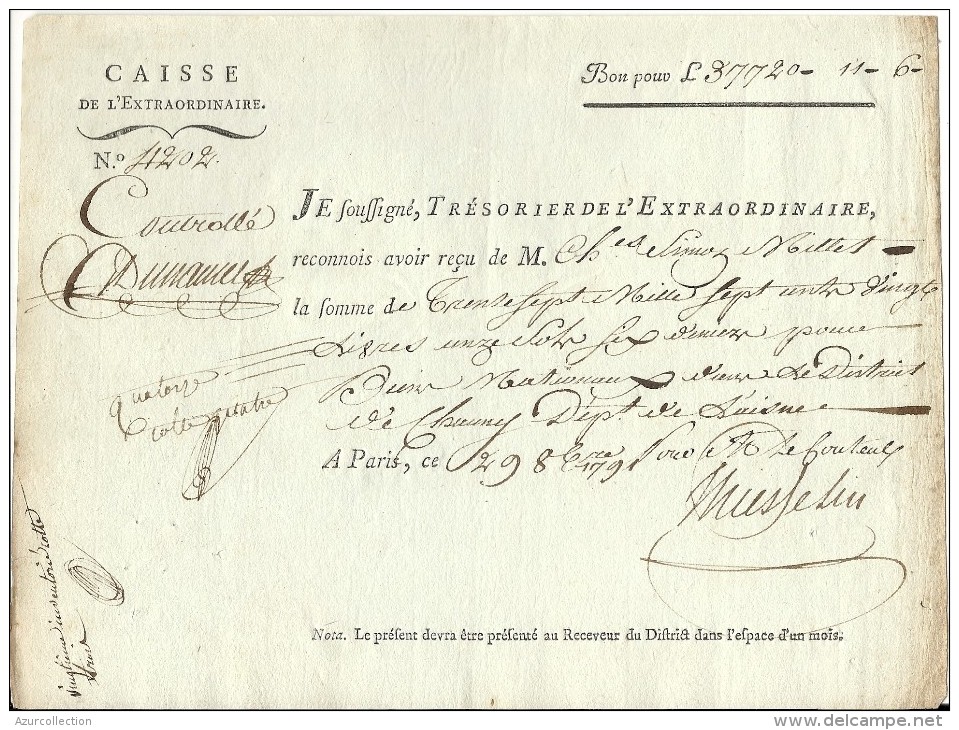 CAISSE
DE L'EXTRAORDINAIRE.
N.º 4202.
Bon pour £ 37720 - 11 - 6 -
Controllé
JE souſſigné, TRÉSORIER DE L'EXTRAORDINAIRE,
reconnois avoir reçu de M. Ch.es Simon Millet
la ſomme de Trente sept Mille sept cents Vingt
Livres onze Sols six deniers pour
Biens Nationaux dans Le District
de Chauny Dépt de L'aisne
A Paris, ce 29 8bre 1791 Pour M Le Couteulx
quatorze
cotte quatre
vingtieme inventorié cotte
Nota. Le préſent devra être préſenté au Receveur du Diſtrict dans l'eſpace d'un mois.
Azurcollection
www.delcampe.net